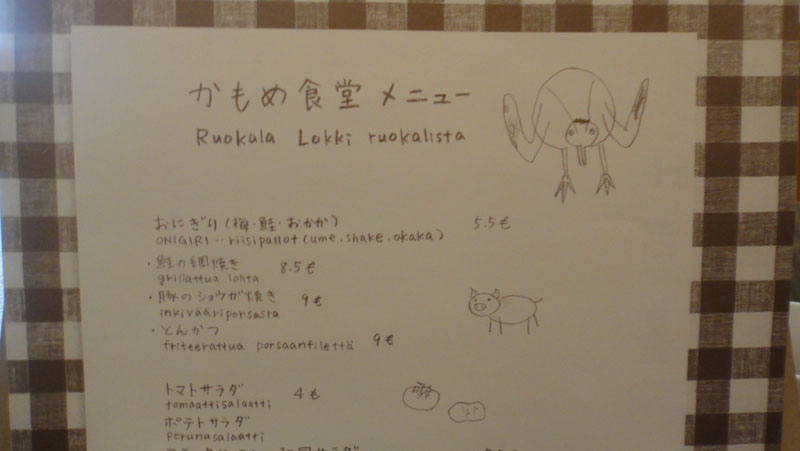 かもめ食堂 メニュー
Ruokala Lokki ruokalista
おにぎり(梅・鮭・おかか) 5.5€
ONIGIRI ‥ riisipallot (ume, shake, okaka)
・鮭の網焼き 8.5€
grillattua lohta
・豚のショウガ焼き 9€
inkivääriporsasta
・とんかつ 9€
friteerattua porsaanfilettä
トマトサラダ 4€
tomaattisalaatti
ポテトサラダ
perunasalaatti